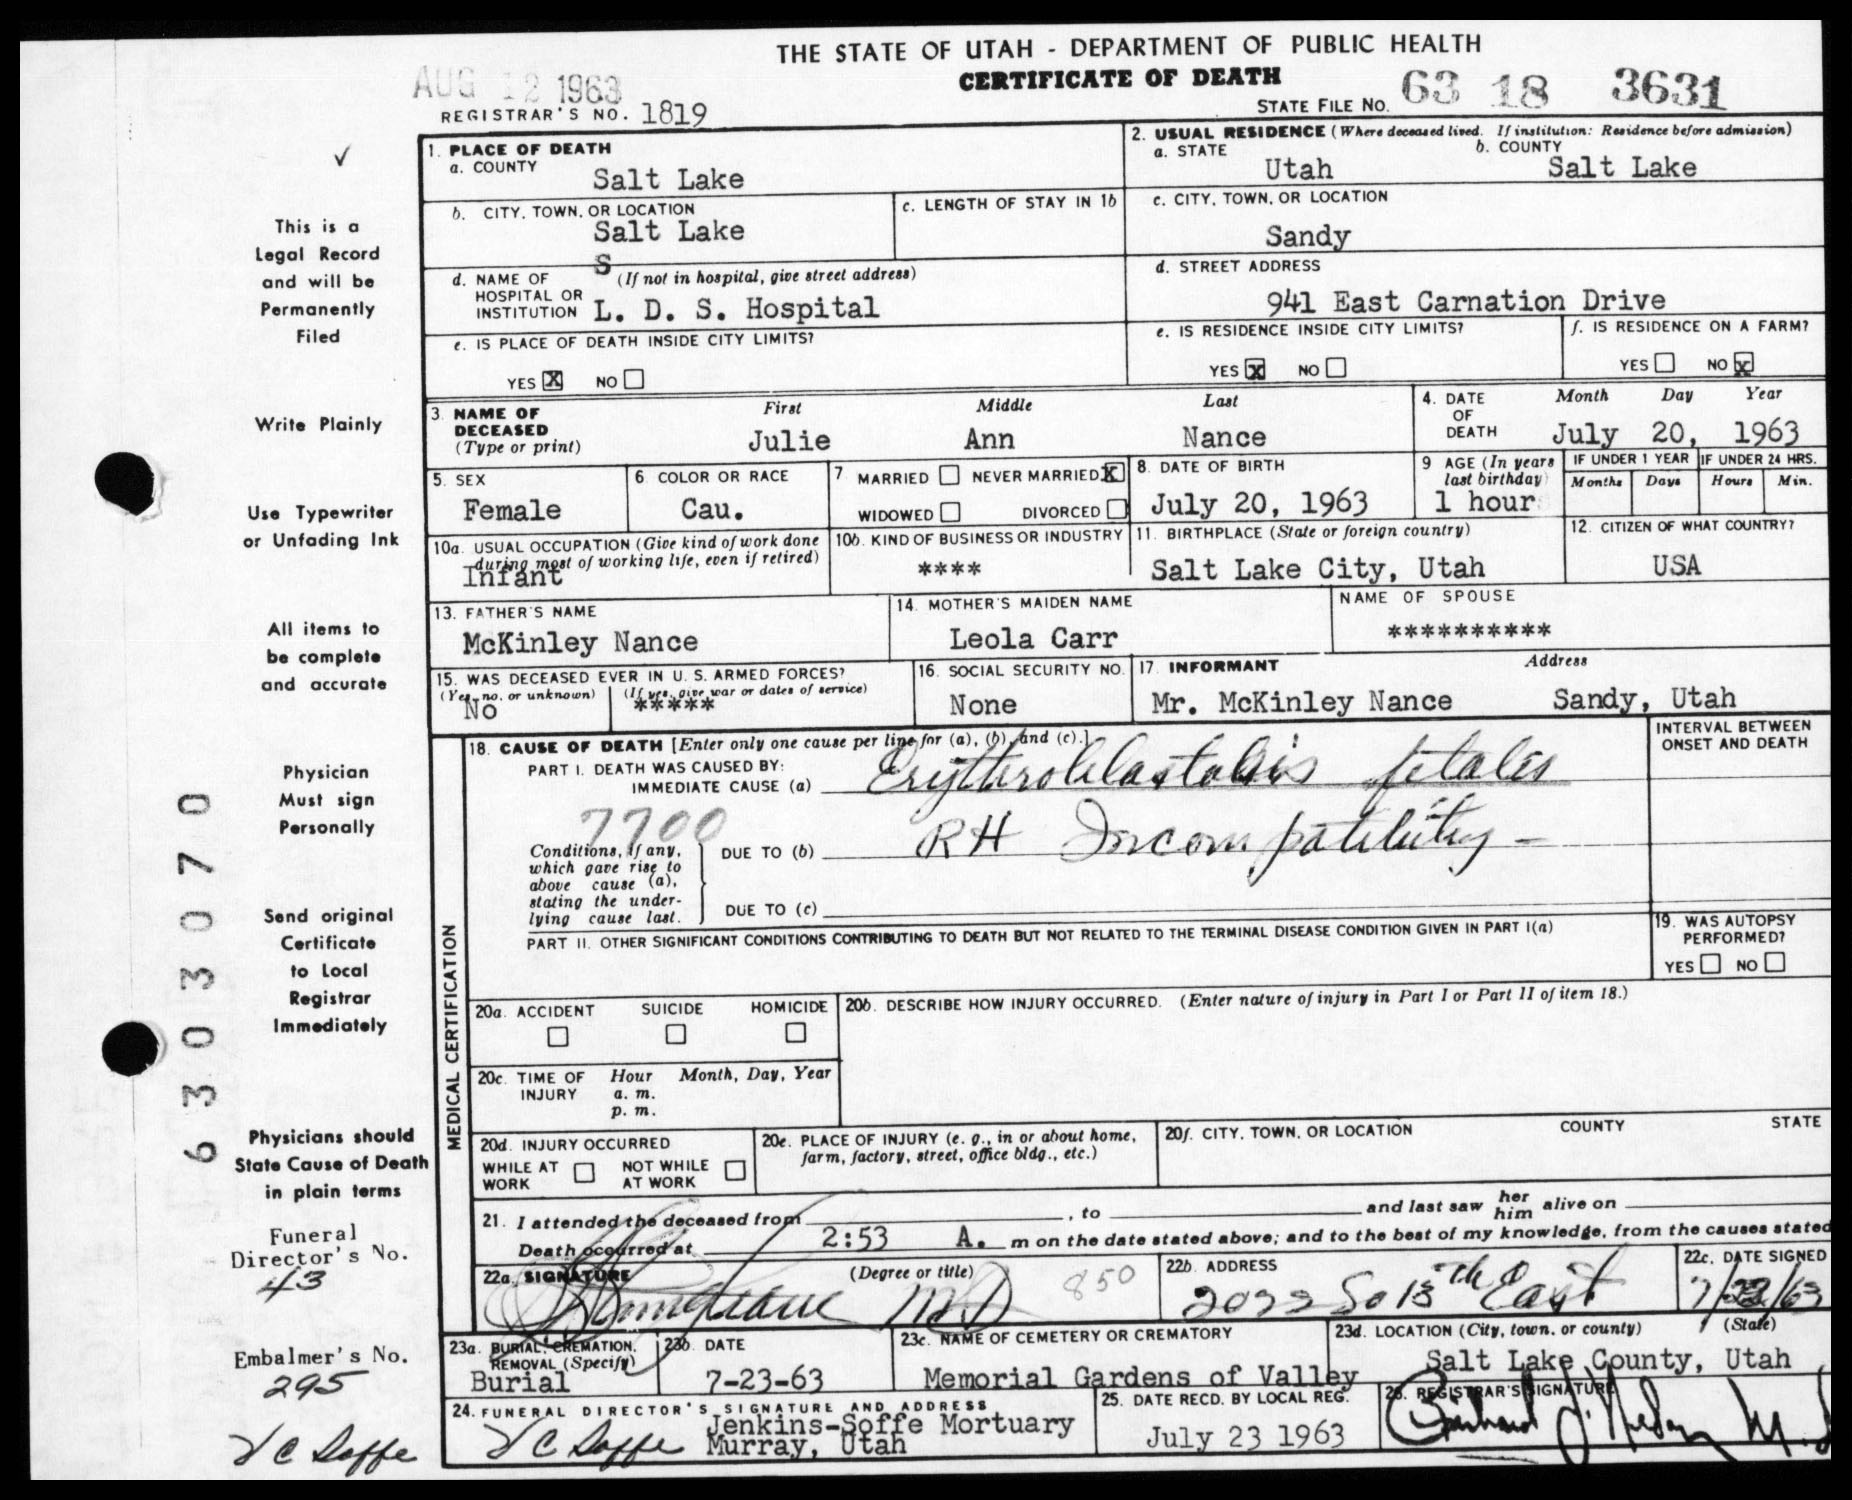 THE STATE OF UTAH - DEPARTMENT OF PUBLIC HEALTH
CERTIFICATE OF DEATH
AUG 12 1963
REGISTRAR'S NO. 1819
STATE FILE NO. 63 18 3631
✓
This is a
Legal Record
and will be
Permanently
Filed
Write Plainly
Use Typewriter
or Unfading Ink
All items to
be complete
and accurate
Physician
Must sign
Personally
Send original
Certificate
to Local
Registrar
Immediately
Physicians should
State Cause of Death
in plain terms
Funeral
Director's No.
43
Embalmer's No.
295
V C Soffe
6303070
1. PLACE OF DEATH
a. COUNTY
Salt Lake
b. CITY, TOWN, OR LOCATION
Salt Lake
c. LENGTH OF STAY IN 1b
S
d. NAME OF HOSPITAL OR INSTITUTION (If not in hospital, give street address)
L. D. S. Hospital
e. IS PLACE OF DEATH INSIDE CITY LIMITS?
YES X NO
2. USUAL RESIDENCE (Where deceased lived. If institution: Residence before admission)
a. STATE b. COUNTY
Utah Salt Lake
c. CITY, TOWN, OR LOCATION
Sandy
d. STREET ADDRESS
941 East Carnation Drive
e. IS RESIDENCE INSIDE CITY LIMITS?
YES X NO
f. IS RESIDENCE ON A FARM?
YES NO X
3. NAME OF DECEASED (Type or print) First Middle Last
Julie Ann Nance
4. DATE OF DEATH Month Day Year
July 20, 1963
5. SEX
Female
6. COLOR OR RACE
Cau.
7 MARRIED NEVER MARRIED X
WIDOWED DIVORCED
8. DATE OF BIRTH
July 20, 1963
9 AGE (In years last birthday)
1 hour
IF UNDER 1 YEAR IF UNDER 24 HRS.
Months Days Hours Min.
10a. USUAL OCCUPATION (Give kind of work done during most of working life, even if retired)
Infant
10b. KIND OF BUSINESS OR INDUSTRY
****
11. BIRTHPLACE (State or foreign country)
Salt Lake City, Utah
12. CITIZEN OF WHAT COUNTRY?
USA
13. FATHER'S NAME
McKinley Nance
14. MOTHER'S MAIDEN NAME
Leola Carr
NAME OF SPOUSE
**********
15. WAS DECEASED EVER IN U. S. ARMED FORCES?
(Yes, no, or unknown) (If yes, give war or dates of service)
No *****
16. SOCIAL SECURITY NO.
None
17. INFORMANT Address
Mr. McKinley Nance Sandy, Utah
MEDICAL CERTIFICATION
18. CAUSE OF DEATH [Enter only one cause per line for (a), (b), and (c).]
INTERVAL BETWEEN ONSET AND DEATH
PART I. DEATH WAS CAUSED BY:
IMMEDIATE CAUSE (a) Erythroblastosis fetalis
7700
Conditions, if any, which gave rise to above cause (a), stating the underlying cause last.
DUE TO (b) RH Incompatibility -
DUE TO (c)
PART II. OTHER SIGNIFICANT CONDITIONS CONTRIBUTING TO DEATH BUT NOT RELATED TO THE TERMINAL DISEASE CONDITION GIVEN IN PART I(a)
19. WAS AUTOPSY PERFORMED?
YES NO
20a. ACCIDENT SUICIDE HOMICIDE
20b. DESCRIBE HOW INJURY OCCURRED. (Enter nature of injury in Part I or Part II of item 18.)
20c. TIME OF INJURY Hour Month, Day, Year
a. m.
p. m.
20d. INJURY OCCURRED
WHILE AT WORK NOT WHILE AT WORK
20e. PLACE OF INJURY (e. g., in or about home, farm, factory, street, office bldg., etc.)
20f. CITY, TOWN, OR LOCATION COUNTY STATE
21. I attended the deceased from , to and last saw her him alive on
Death occurred at 2:53 A. m on the date stated above; and to the best of my knowledge, from the causes stated
22a. SIGNATURE (Degree or title)
MD 850
22b. ADDRESS
So 13th East
22c. DATE SIGNED
7/22/63
23a. BURIAL, CREMATION, REMOVAL (Specify)
Burial
23b. DATE
7-23-63
23c. NAME OF CEMETERY OR CREMATORY
Memorial Gardens of Valley
23d. LOCATION (City, town, or county) (State)
Salt Lake County, Utah
24. FUNERAL DIRECTOR'S SIGNATURE AND ADDRESS
V C Soffe Jenkins-Soffe Mortuary
Murray, Utah
25. DATE RECD. BY LOCAL REG.
July 23 1963
26. REGISTRAR'S SIGNATURE